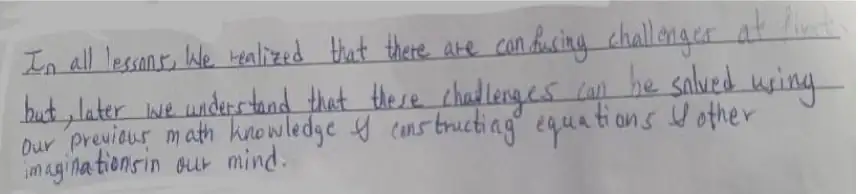 In all lessons, We realized that there are confusing challenges at first
but, later we understand that these challenges can be solved using
our previous math knowledge & constructing equations & other
imaginations in our mind.